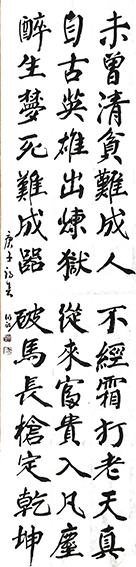 未曾清貧難成人 不經霜打老天真
自古英雄出煉獄 從來富貴入凡塵
醉生夢死難成器 破馬長槍定乾坤
庚子